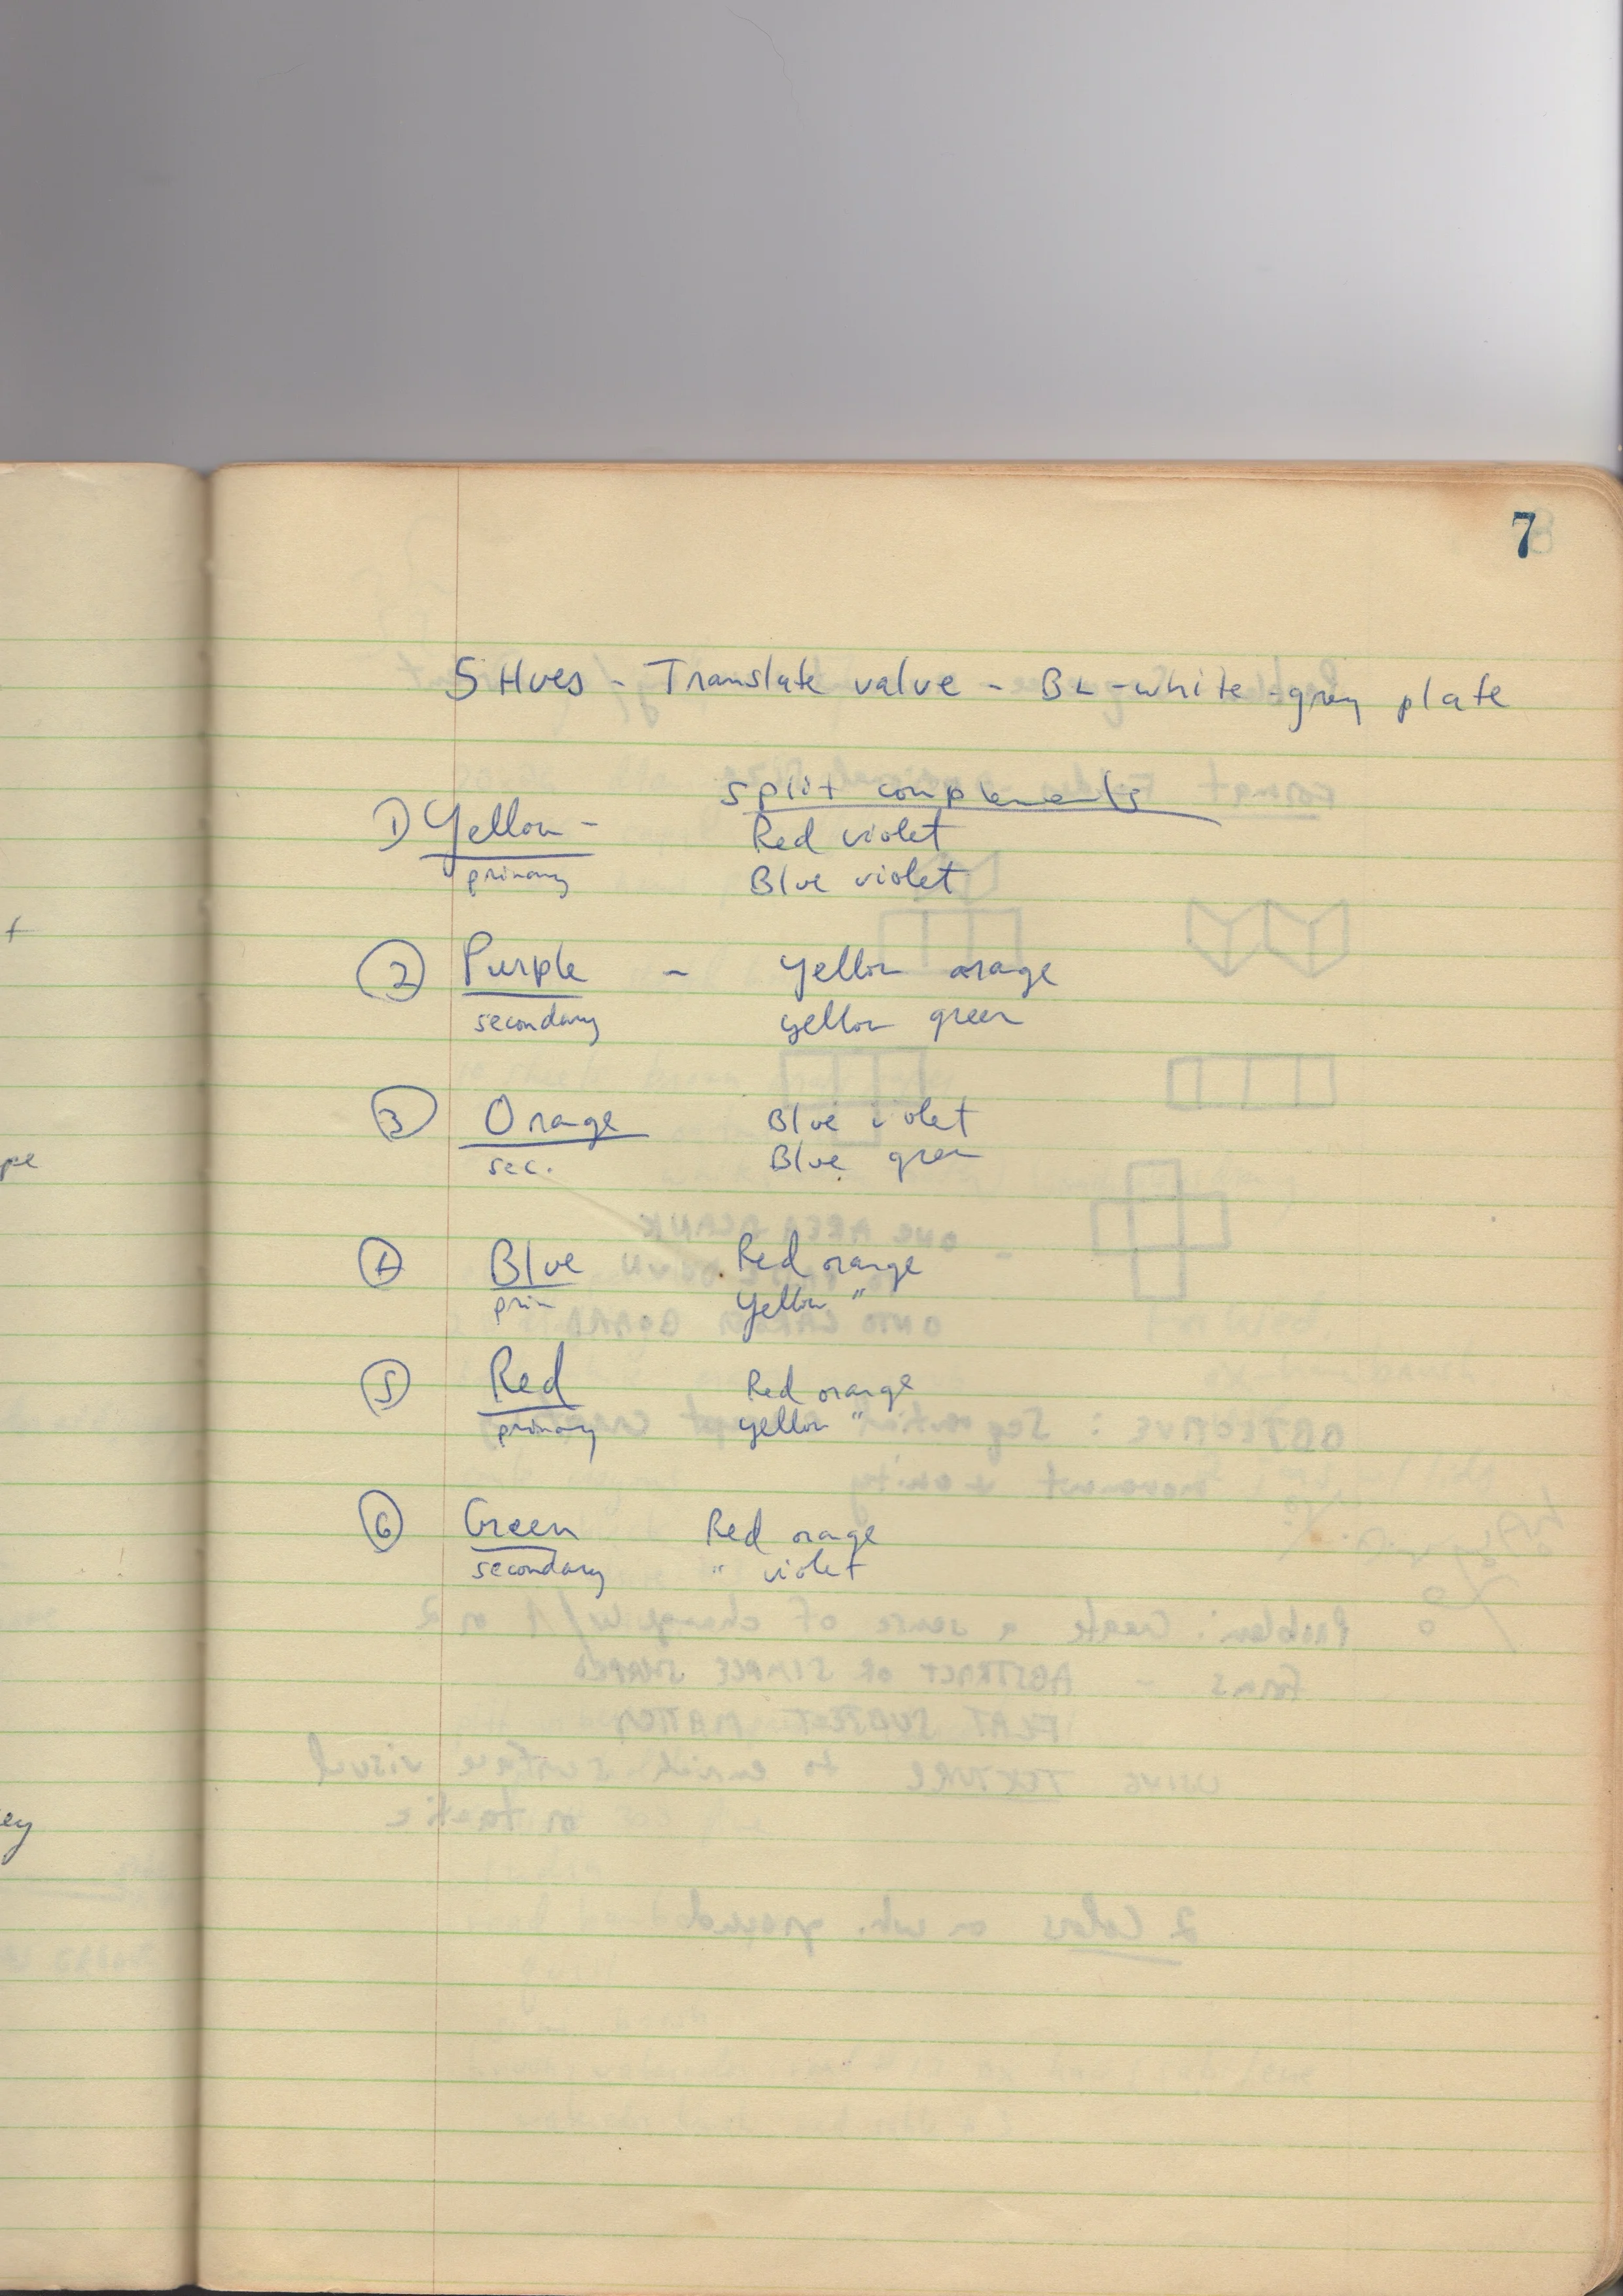 7
5 Hues - Translate value - BL - white - grey plate
split complements
1) Yellow - Red violet
primary Blue violet
2 Purple - yellow orange
secondary yellow green
3 Orange Blue violet
sec. Blue green
4 Blue Red orange
prim yellow "
5 Red Red orange
primary yellow "
6 Green Red orange
secondary " violet